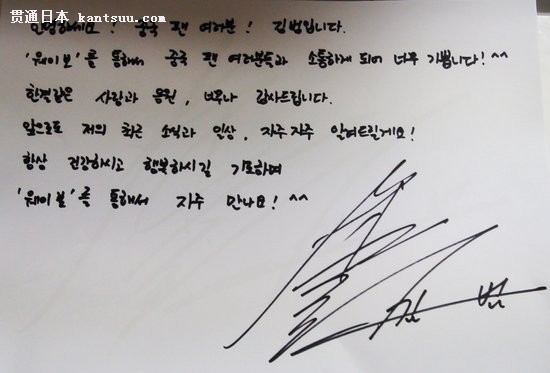 贯通日本 kantsuu.com
안녕하세요! 중국 팬 여러분! 김범입니다.
'웨이보'를 통해서 중국 팬 여러분들과 소통하게 되어 너무 기쁩니다! ^^
한결같은 사랑과 응원, 너무나 감사드립니다.
앞으로도 저의 최근 소식과 일상, 자주자주 알려드릴게요!
항상 건강하시고 행복하시길 기도하며
'웨이보'를 통해서 자주 만나요! ^^
김범